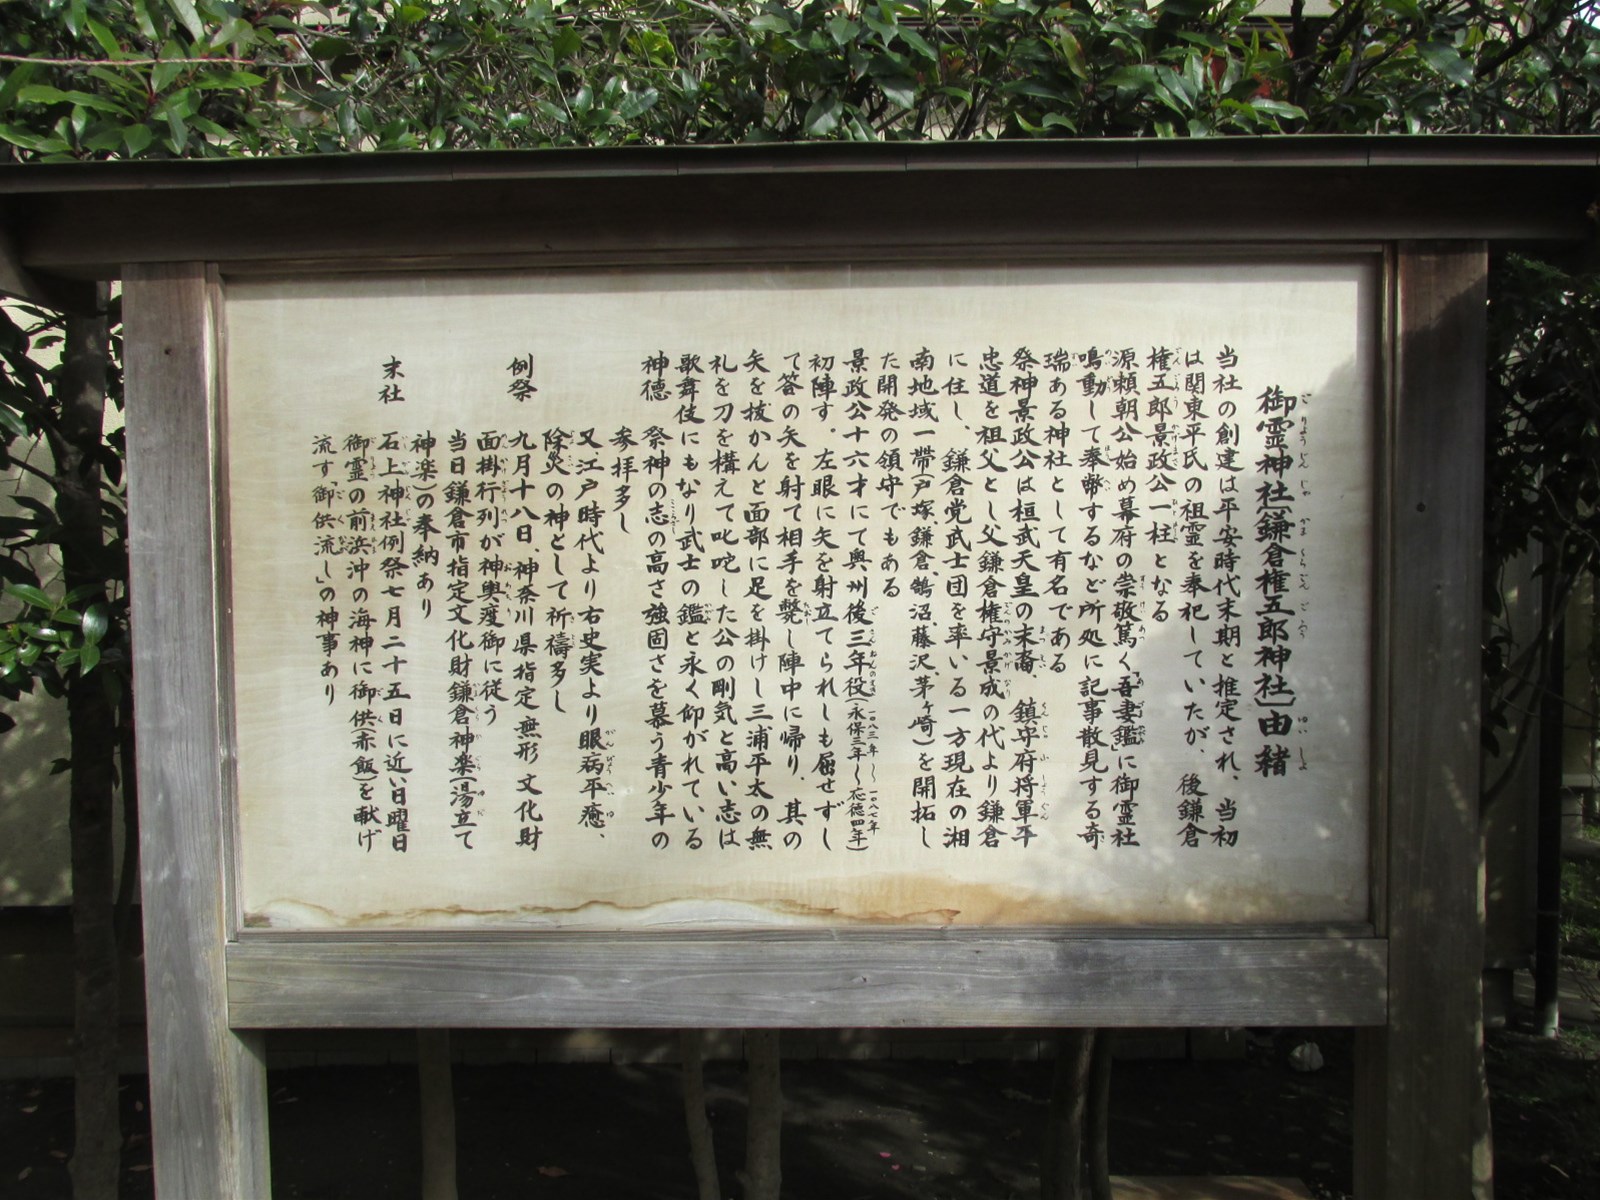 御霊神社(鎌倉権五郎神社)由緒
当社の創建は平安時代末期と推定され、当初
は関東平氏の祖霊を奉祀していたが、後鎌倉
権五郎景政公一柱となる
源頼朝公始め幕府の崇敬篤く「吾妻鑑」に御霊社
鳴動して奉幣するなど所処に記事散見する奇
瑞ある神社として有名である
祭神景政公は桓武天皇の末裔、鎮守府将軍平
忠道を祖父とし父鎌倉権守景成の代より鎌倉
に住し、鎌倉党武士団を率いる一方現在の湘
南地域一帯(戸塚、鎌倉、鵠沼、藤沢、茅ヶ崎)を開拓し
た開発の領守でもある
景政公十六才にて奥州後三年役(永保三年〜応徳四年)一〇八三年〜一〇八七年
初陣す。左眼に矢を射立てられしも屈せずし
て答の矢を射て相手を斃し陣中に帰り、其の
矢を抜かんと面部に足を掛けし三浦平太の無
礼を刀を構えて叱咤した公の剛気と高い志は
歌舞伎にもなり武士の鑑と永く仰がれている
神徳 祭神の志の高さ強固さを慕う青少年の
参拝多し
又、江戸時代より右史実より眼病平癒、
除災の神として祈禱多し
例祭 九月十八日、神奈川県指定無形文化財
面掛行列が神輿渡御に従う
当日鎌倉市指定文化財鎌倉神楽(湯立て
神楽)の奉納あり
末社 石上神社例祭七月二十五日に近い日曜日
御霊の前浜沖の海神に御供(赤飯)を献げ
流す「御供流し」の神事あり